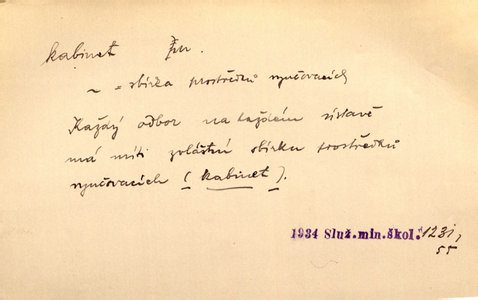 kabinet žu.
~ = sbírka prostředků vyučovacích
Každý odbor na každém ústavě
má míti zvláštní sbírku prostředků
vyučovacích (kabinet).
1934 Služ.mln.škol. 123i,
55